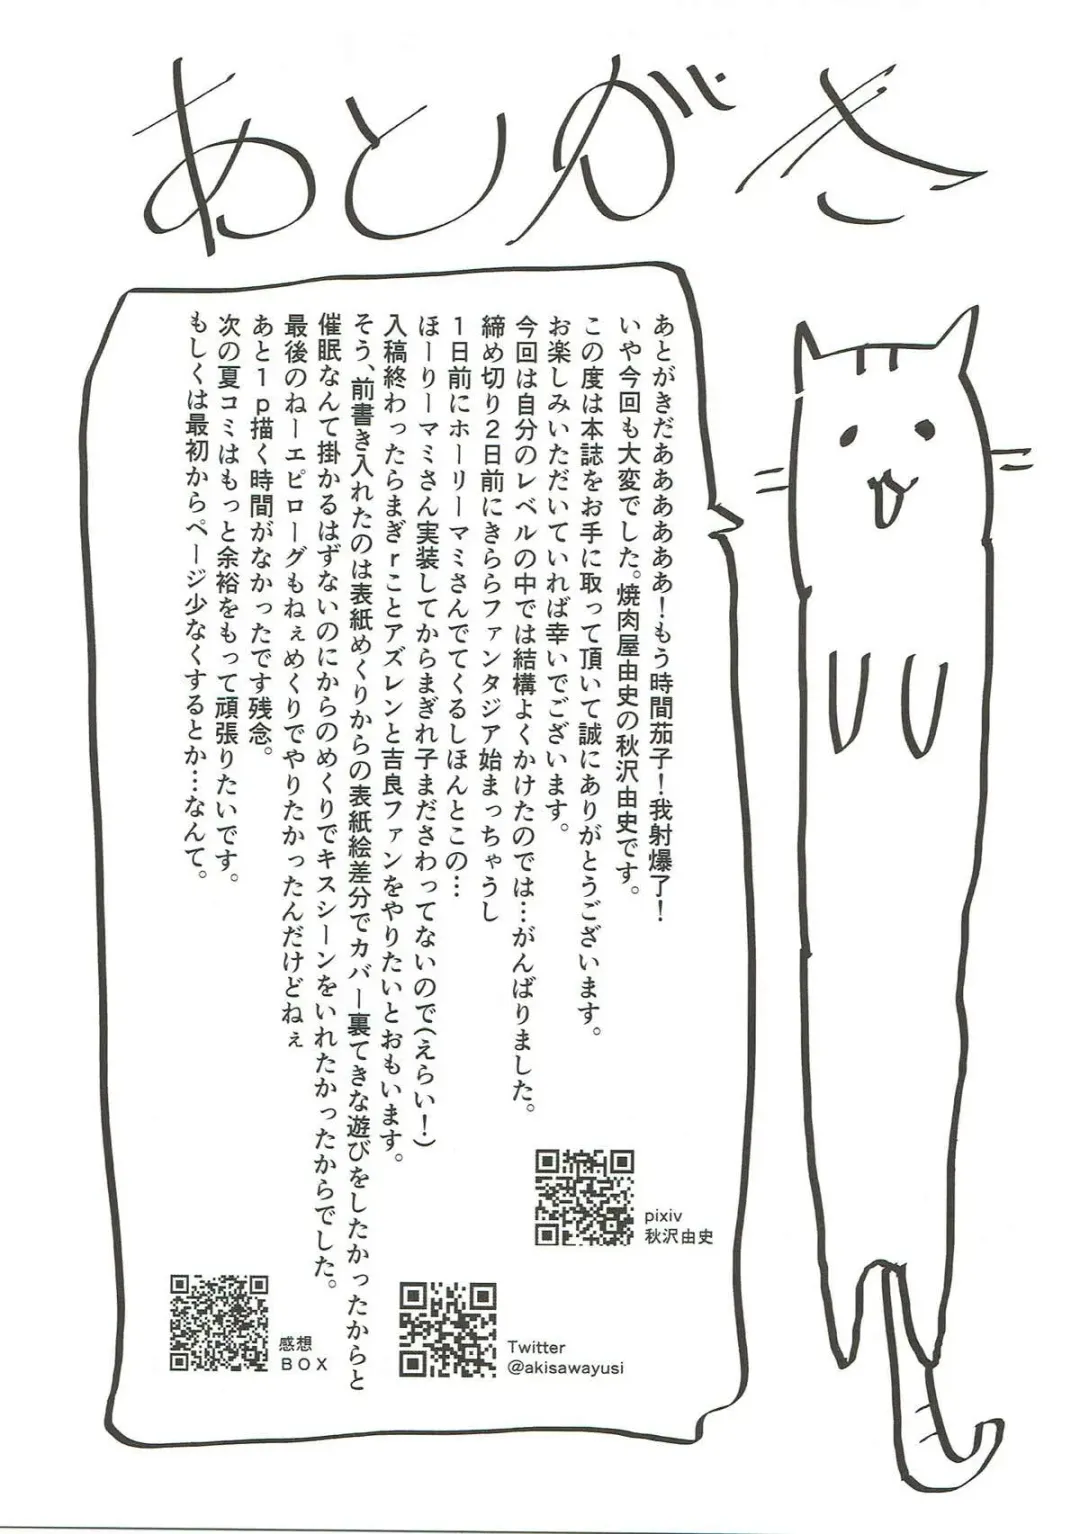 あとがき
あとがきだあああああああ！もう時間茄子！我射爆了！
いや今回も大変でした。焼肉屋由史の秋沢由史です。
この度は本誌をお手に取って頂いて誠にありがとうございます。
お楽しみいただいていれば幸いでございます。
今回は自分のレベルの中では結構よくかけたのでは…がんばりました。
締め切り２日前にきららファンタジア始まっちゃうし
１日前にホーリーマミさんでてくるしほんとこの…
ほーりーマミさん実装してからまぎれ子まださわってないので（えらい！）
入稿終わったらまぎｒことアズレンと吉良ファンをやりたいとおもいます。
そう、前書き入れたのは表紙めくりからの表紙絵差分でカバー裏てきな遊びをしたかったからと
催眠なんて掛かるはずないのにからのめくりでキスシーンをいれたかったからでした。
最後のねーエピローグもねぇめくりでやりたかったんだけどねぇ
あと１ｐ描く時間がなかったです残念。
次の夏コミはもっと余裕をもって頑張りたいです。
もしくは最初からページ少なくするとか…なんて。
pixiv
秋沢由史
Twitter
@akisawayusi
感想
ＢＯＸ